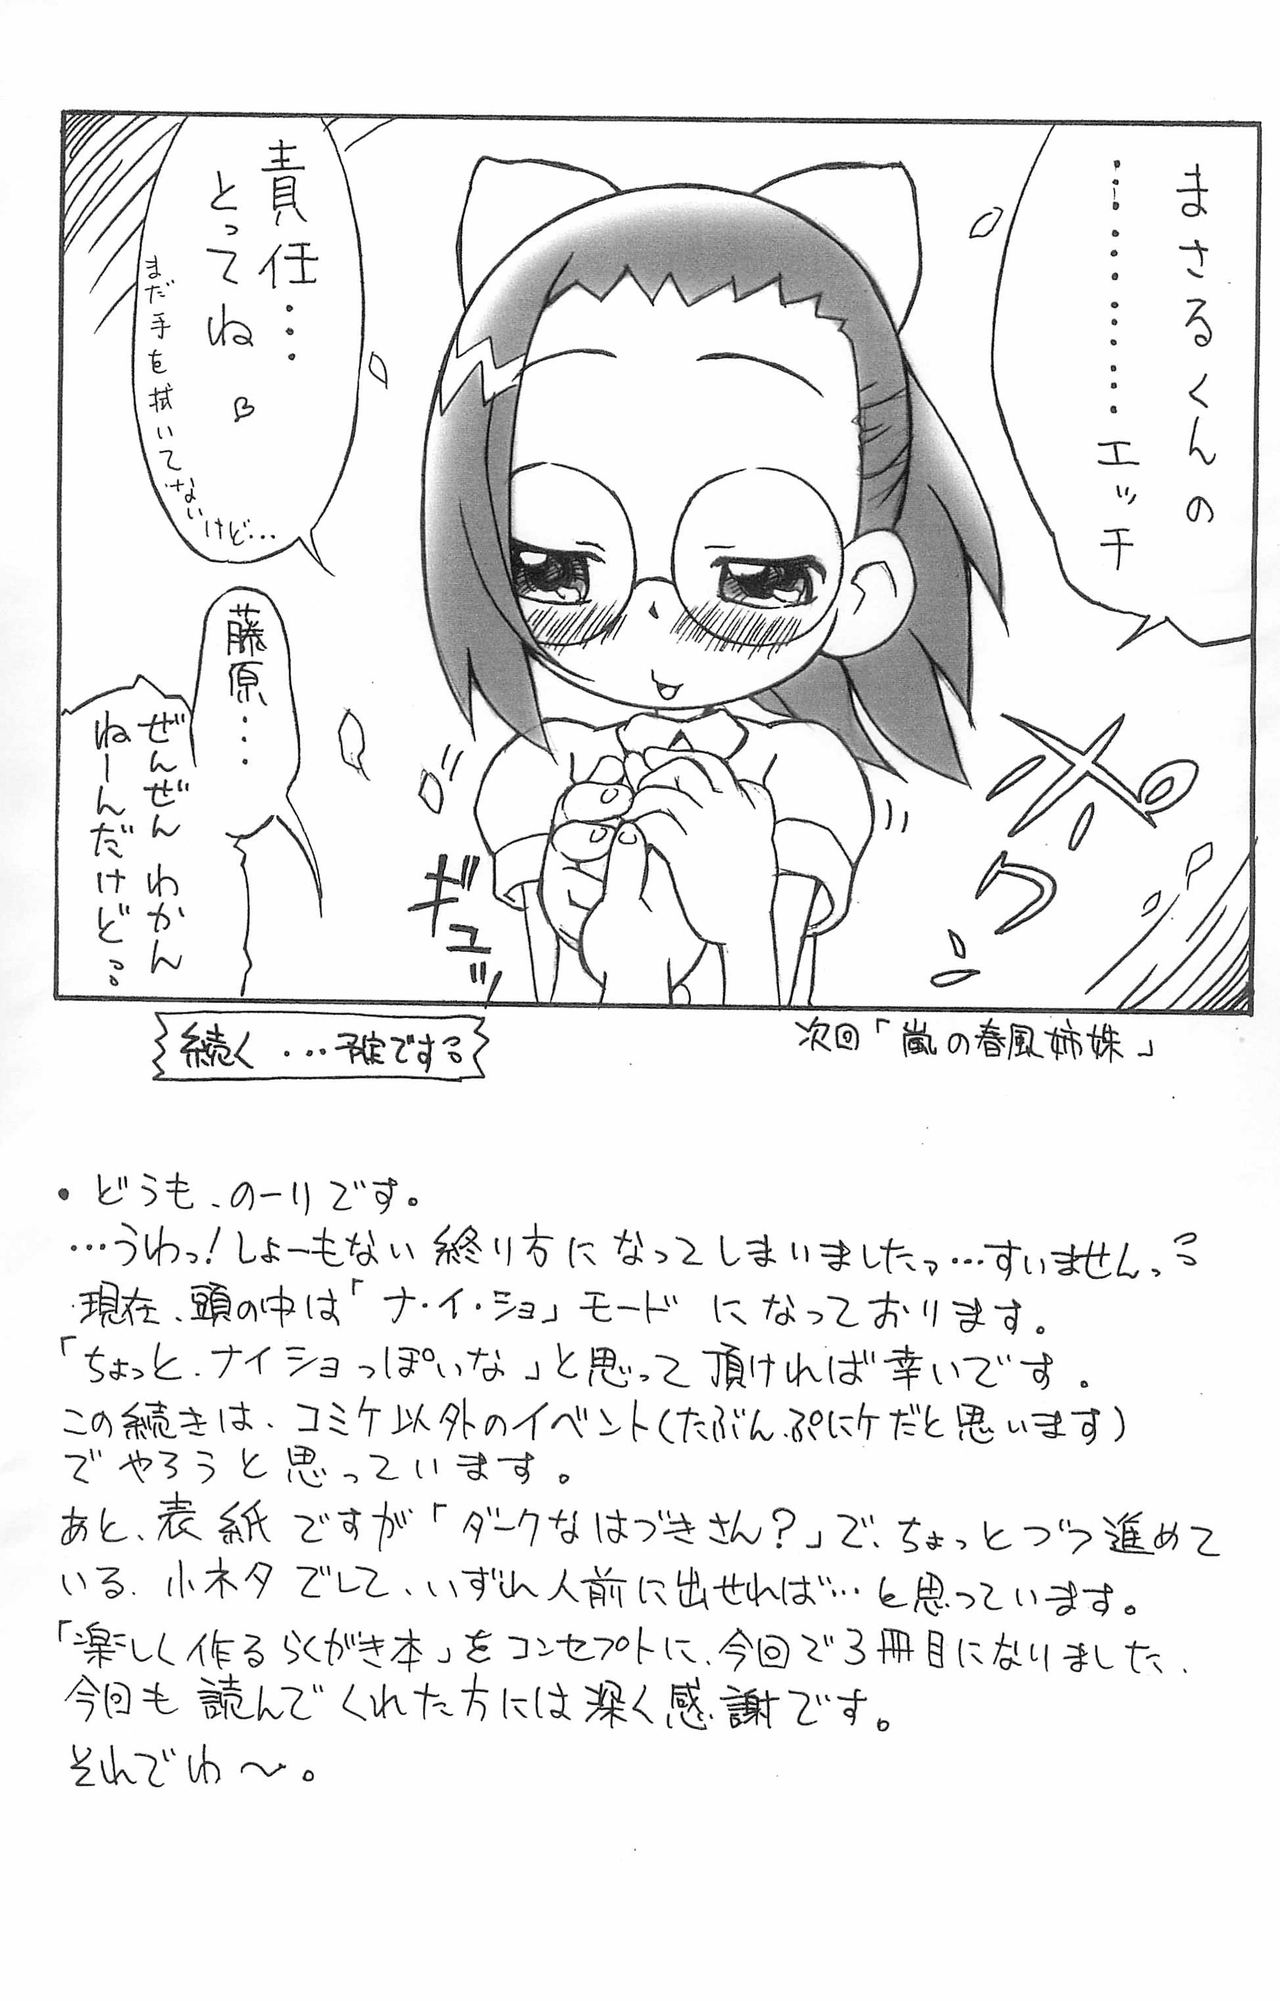 まさるくんの
…………エッチ
責任…
とってね
まだ手を拭いてないけど…
藤原…
ぜんぜんわかん
ねーんだけど…
ギュッ
続く…予定です
次回「嵐の春風姉妹」
・どうも、のーりです。
…うわっ!しょーもない終り方になってしまいましたっ…すいませんっ
現在、頭の中は「ナ・イ・ショ」モードになっております。
「ちょっと、ナイショっぽいな」と思って頂ければ幸いです。
この続きは、コミケ以外のイベント(たぶん、ぷにケだと思います)
でやろうと思っています。
あと、表紙ですが「ダークなはづきさん?」で、ちょっとづつ進めて
いる、小ネタでして、いずれ人前に出せれば…と思っています。
「楽しく作るらくがき本」をコンセプトに、今回で3冊目になりました、
今回も読んでくれた方には深く感謝です。
それでわ〜。